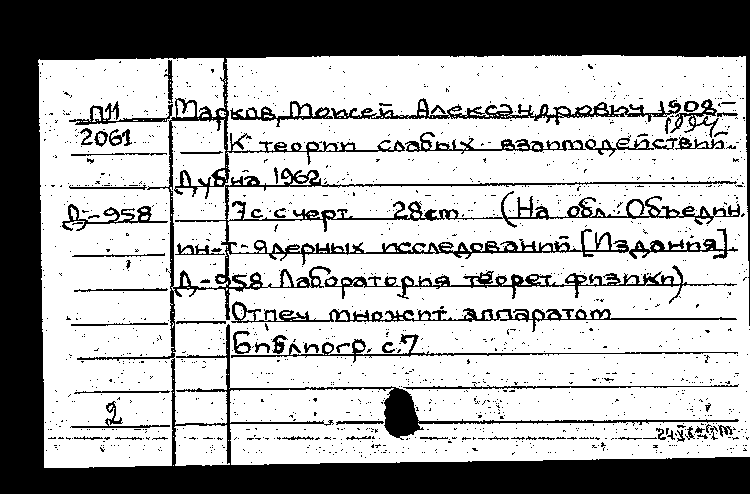 П11 Марков, Моисей Александрович, 1908-
1994
2061 К теории слабых взаимодействий.
Дубна, 1962.
Д-958 7 с. с черт. 28 см. (На обл.: Объедин.
ин-т ядерных исследований. [Издания].
Д-958. Лаборатория теорет. физики).
Отпеч. множит. аппаратом
Библиогр. с. 7
2